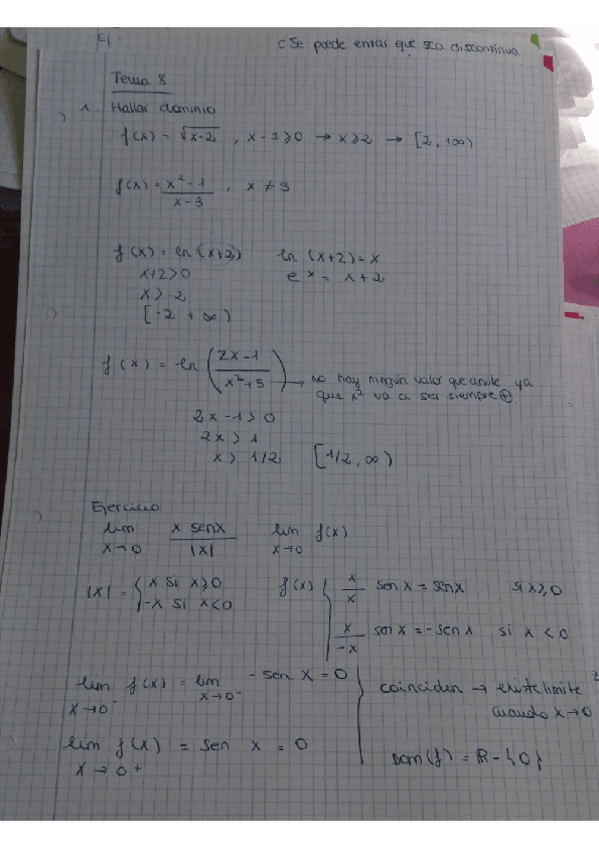 Ej:
¿Se puede evitar que sea discontinua
Tema 8
1. Hallar dominio
f(x) = √x-2 , x-2≥0 → x≥2 → [2, +∞)
f(x) = x²-1 / x-3 , x ≠ 3
f(x) = ln (x+2)    ln (x+2) = x
x+2>0    e^x = x+2
x>-2
[-2 +∞)
f(x) = ln (2x-1 / x²+5) → no hay ningún valor que anule ya
que x² va a ser siempre ⊕
2x-1>0
2x>1
x> 1/2    [1/2, ∞)
Ejercicio
lim x→0 x senx / |x|    lim x→0 f(x)
|x| = { x si x≥0    f(x) { x/x sen x = senx    si x≥0
-x si x<0    x/-x sen x = -sen x    si x<0
lim x→0⁻ f(x) = lim x→0⁻ -sen x = 0 } coinciden → existe limite
cuando x→0
lim x→0+ f(x) = sen x = 0
Dom(f) = ℝ-{0}